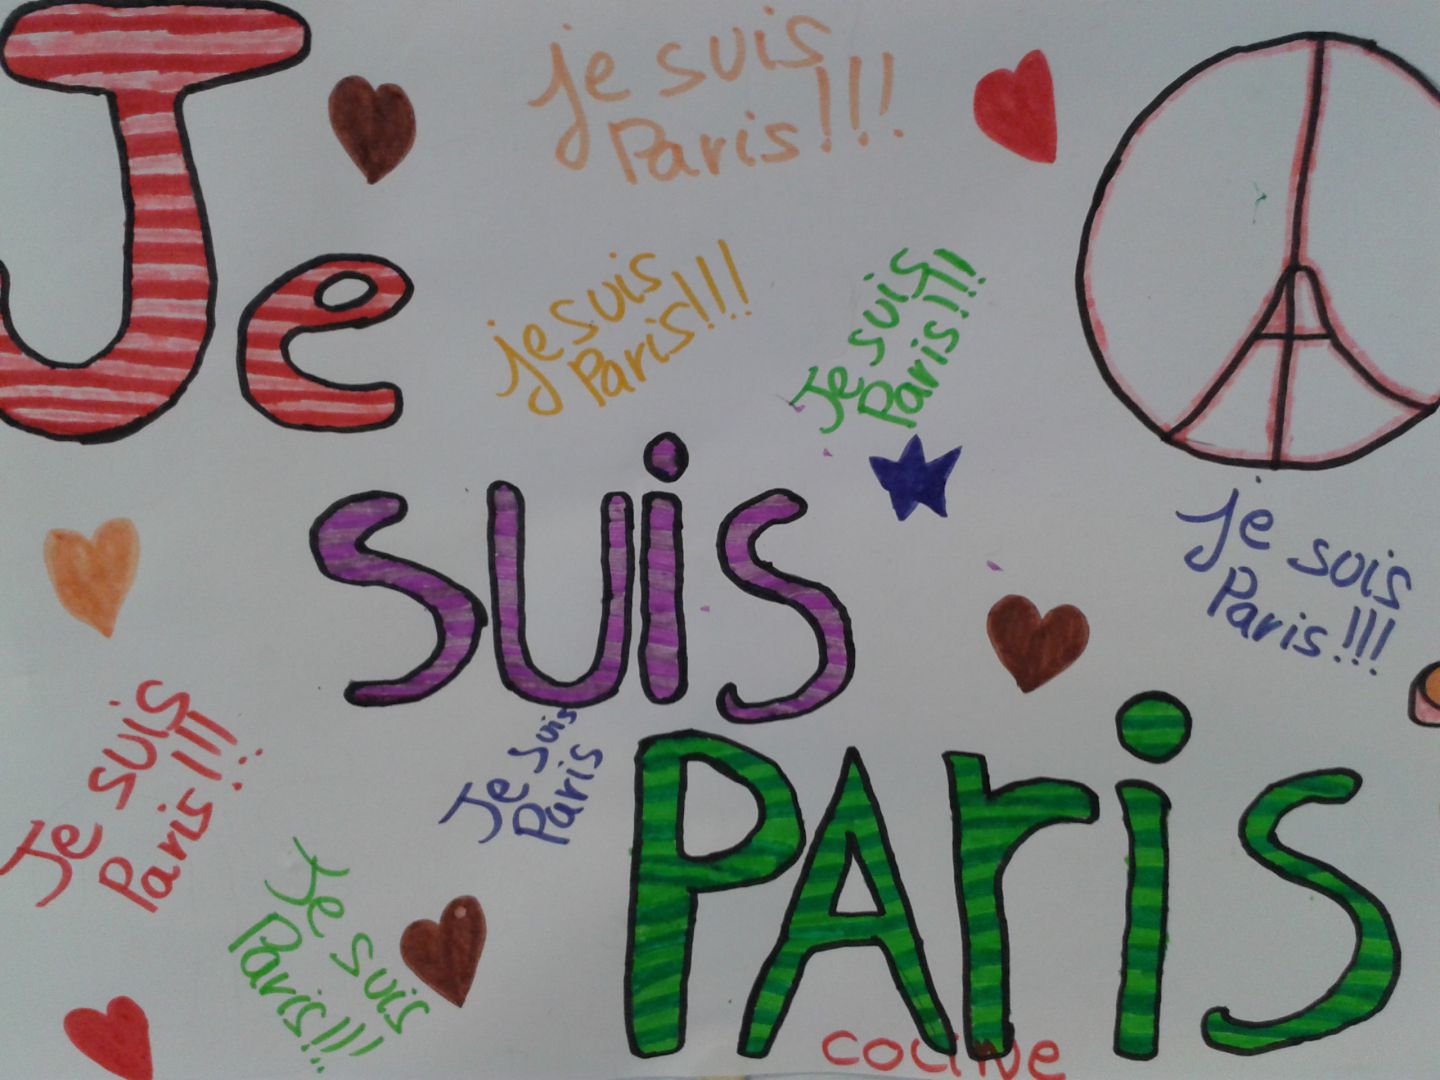 Je
suis
PAris
je suis
Paris!!!
je suis
Paris!!!
Je suis
Paris!!!
je suis
Paris!!!
Je suis
Paris!!!
Je suis
Paris
Je suis
Paris!!!